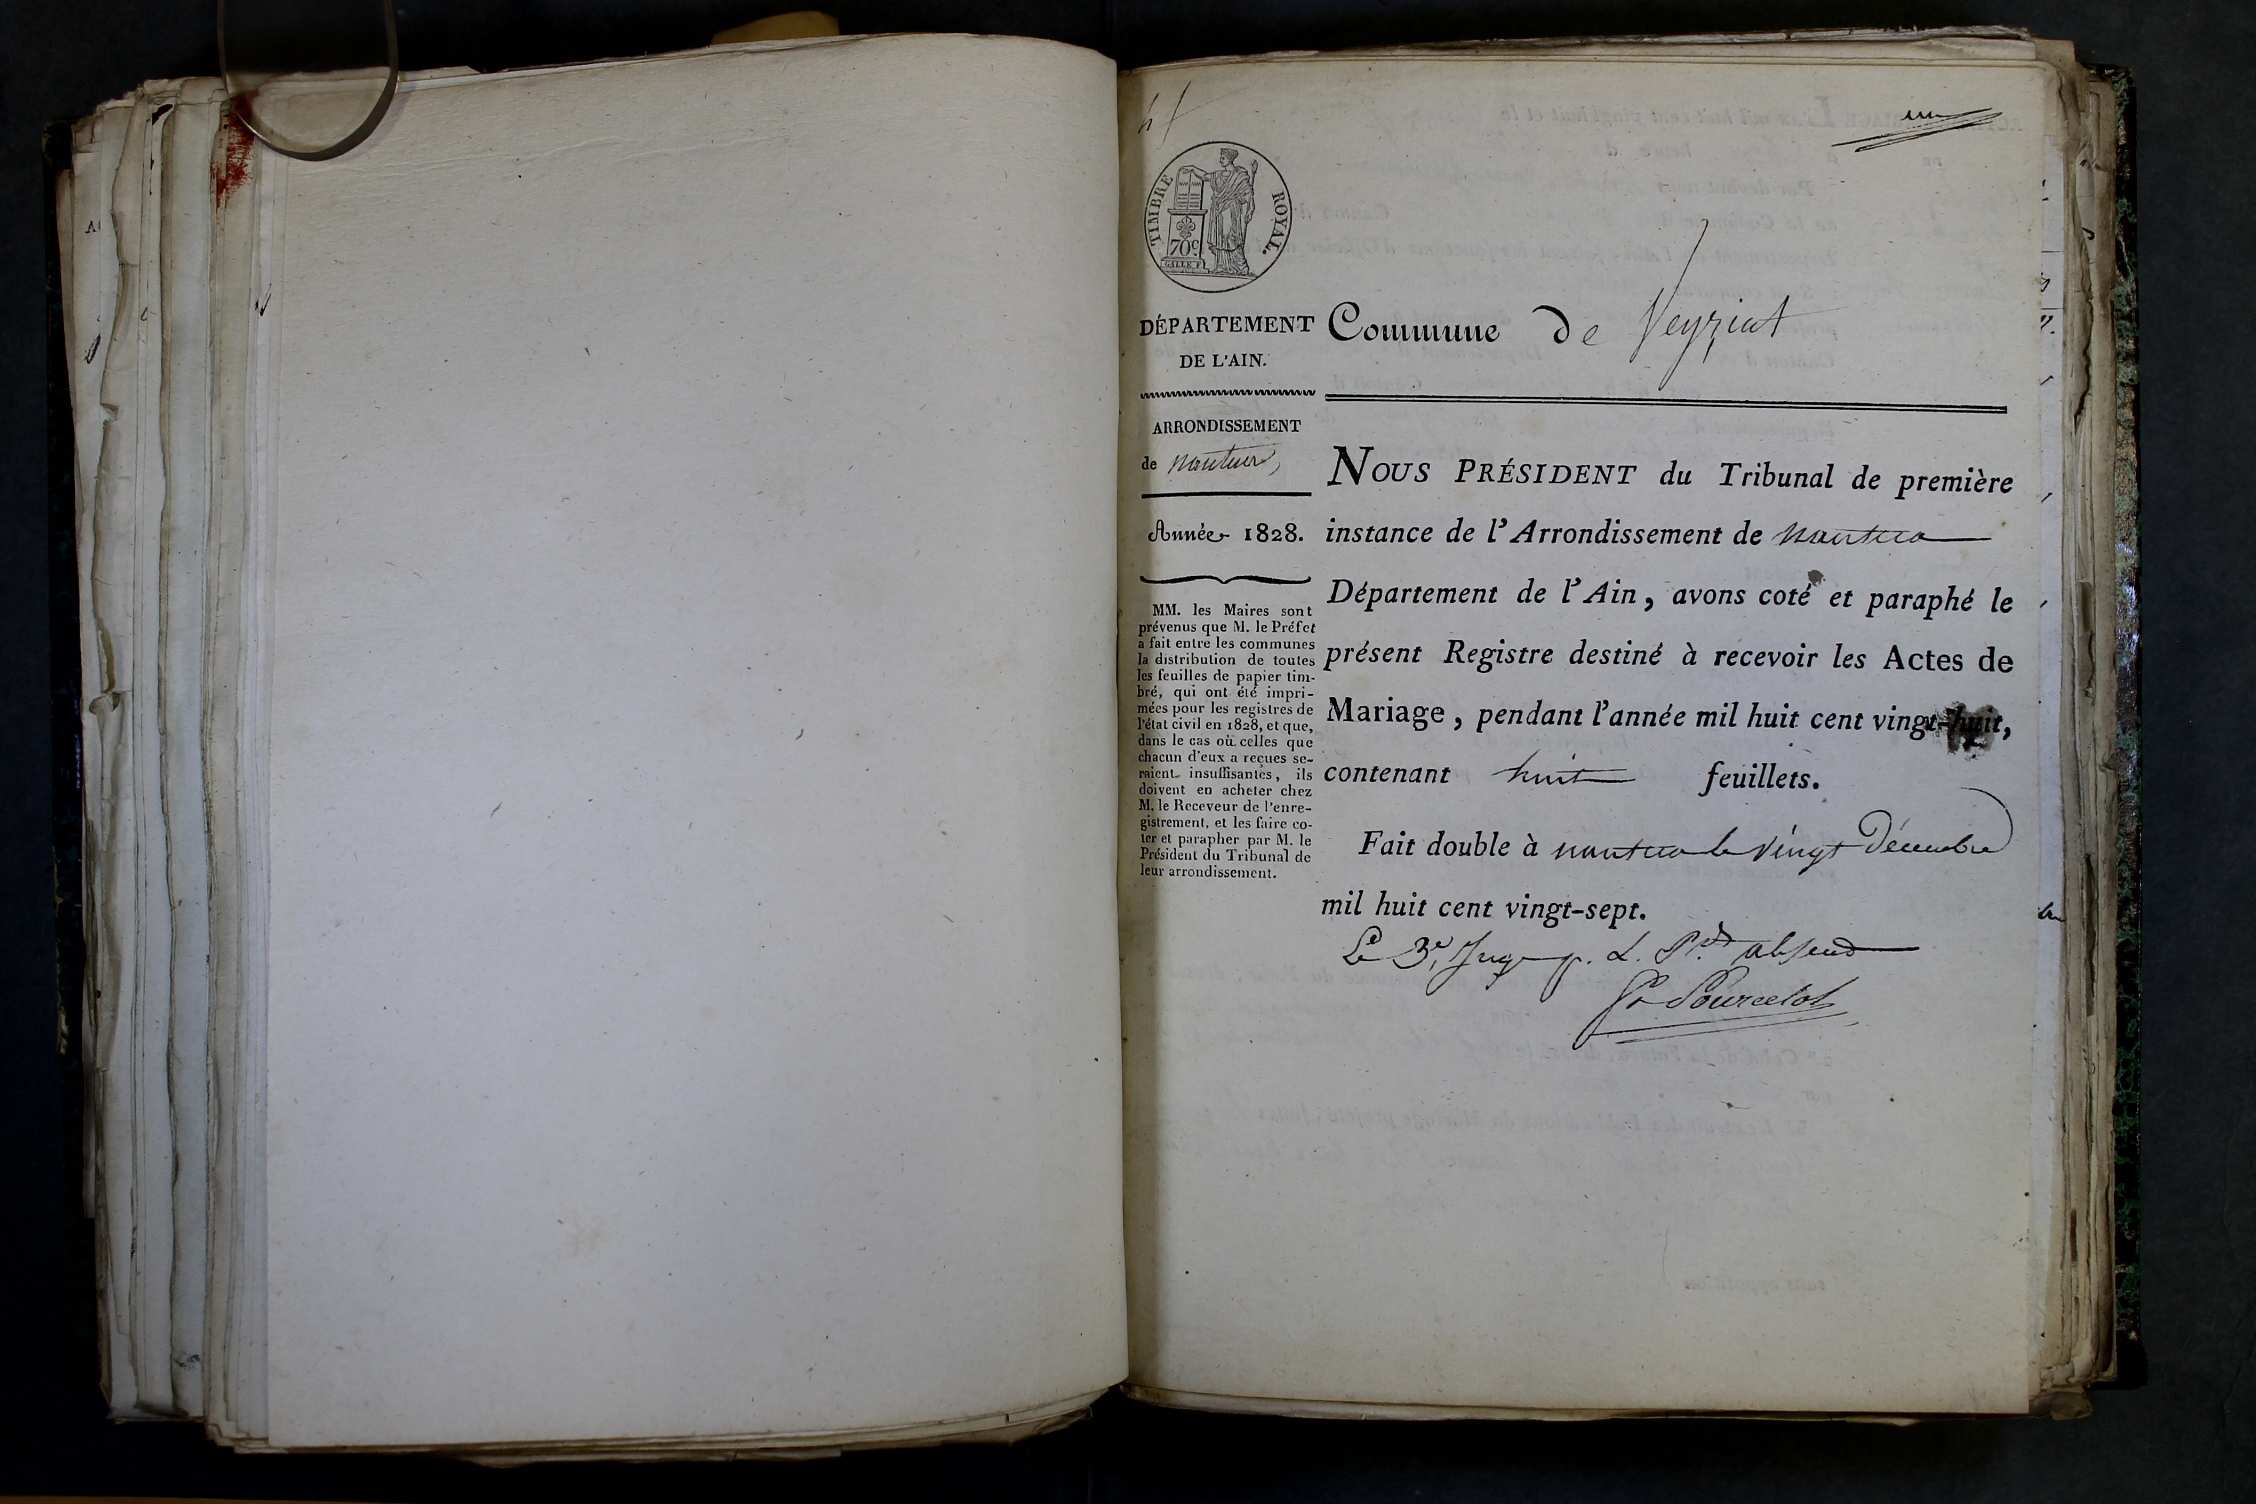 un
TIMBRE ROYAL.
70c.
GALLE F.
DÉPARTEMENT
DE L'AIN.
ARRONDISSEMENT
de nantua
Année 1828.
MM. les Maires sont
prévenus que M. le Préfet
a fait entre les communes
la distribution de toutes
les feuilles de papier tim-
bré, qui ont été impri-
mées pour les registres de
l'état civil en 1828, et que,
dans le cas où celles que
chacun d'eux a reçues se-
raient insuffisantes, ils
doivent en acheter chez
M. le Receveur de l'enre-
gistrement, et les faire co-
ter et parapher par M. le
Président du Tribunal de
leur arrondissement.
Commune de Veyziat
NOUS PRÉSIDENT du Tribunal de première
instance de l'Arrondissement de nantua
Département de l'Ain, avons coté et paraphé le
présent Registre destiné à recevoir les Actes de
Mariage, pendant l'année mil huit cent vingt-huit,
contenant huit feuillets.
Fait double à nantua le vingt Décembre
mil huit cent vingt-sept.
Le 3e. Juge p. L. Pt. absend